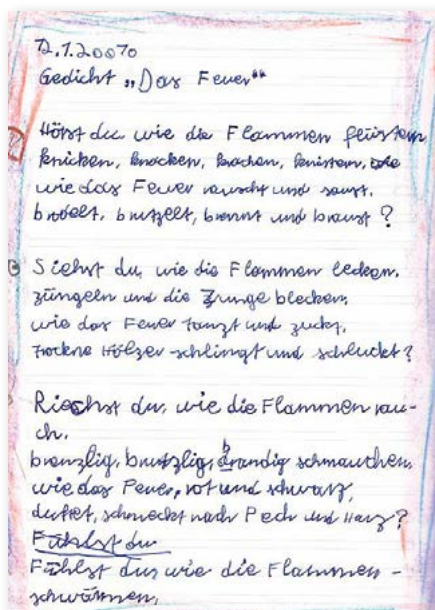 12.1.20010
Gedicht „Das Feuer“
Hörst du wie die Flammen flüstern
knicken, knacken, krachen, knistern, wie
wie das Feuer rauscht und saust,
brodelt, brutzelt, brennt und braust?
Siehst du, wie die Flammen lecken,
züngeln und die Zunge blecken,
wie das Feuer tanzt und zuckt,
trockne Hölzer schlingt und schluckt?
Riechst du, wie die Flammen rau-
ch,
brenzlig, brutzlig, brandig schmauchen,
wie das Feuer, rot und schwarz,
duftet, schmeckt nach Pech und Harz?
Fühlst du
Fühlst du, wie die Flammen -
schwärmen,